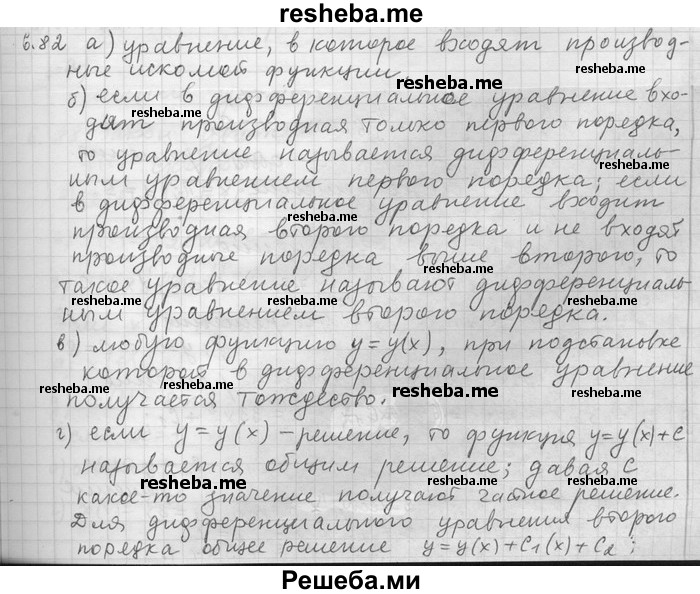 resheba.me
6.82 а) уравнение, в которое входят производ-
ные искомой функции.
resheba.me resheba.me
б) если в дифференциальное уравнение вхо-
resheba.me
дит производная только первого порядка,
то уравнение называется дифференциаль-
resheba.me
ным уравнением первого порядка; если
в дифференциальное уравнение входит
resheba.me
производная второго порядка и не входят
производные порядка выше второго, то
resheba.me
такое уравнение называют дифференциаль-
resheba.me resheba.me
ным уравнением второго порядка.
в) любую функцию y=y(x), при подстановке
resheba.me
которой в дифференциальное уравнение
resheba.me resheba.me
получается тождество.
г) если y=y(x) – решение, то функция y=y(x)+C
resheba.me
называется общим решение; давая C
resheba.me resheba.me
какое-то значение получают частное решение.
Для дифференциального уравнения второго
resheba.me
порядка общее решение y=y(x)+C1(x)+C2;
Решеба.ми